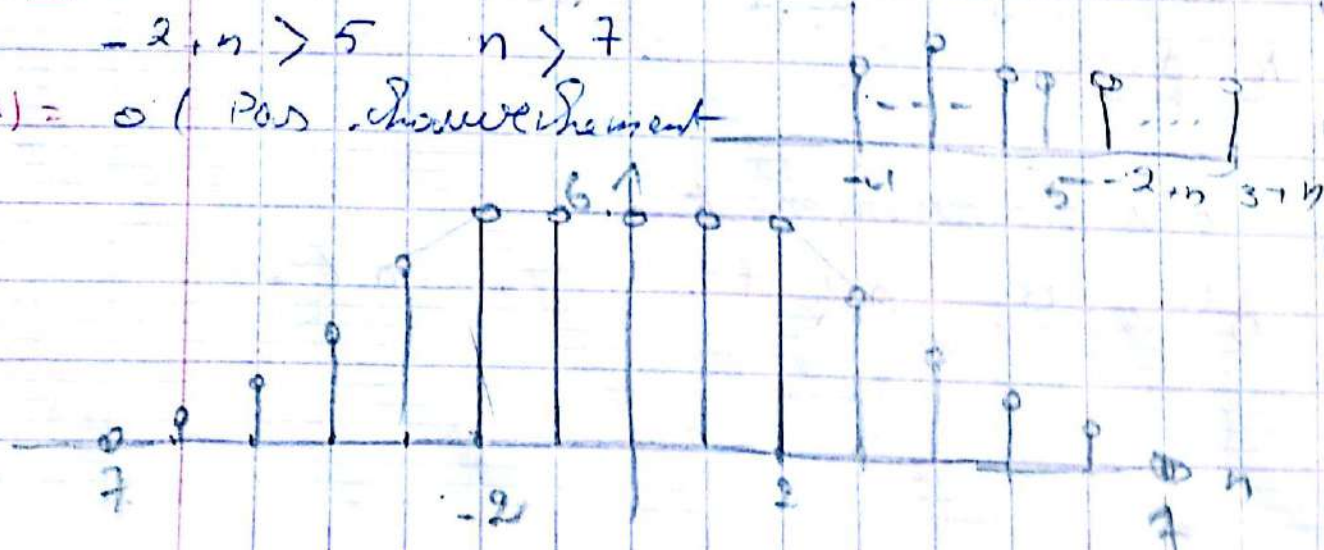 -2+n > 5 n > 7
) = 0 ( Pas chauvechement
-4 5 -2+n 3+n
6
7 -2 2 7 n